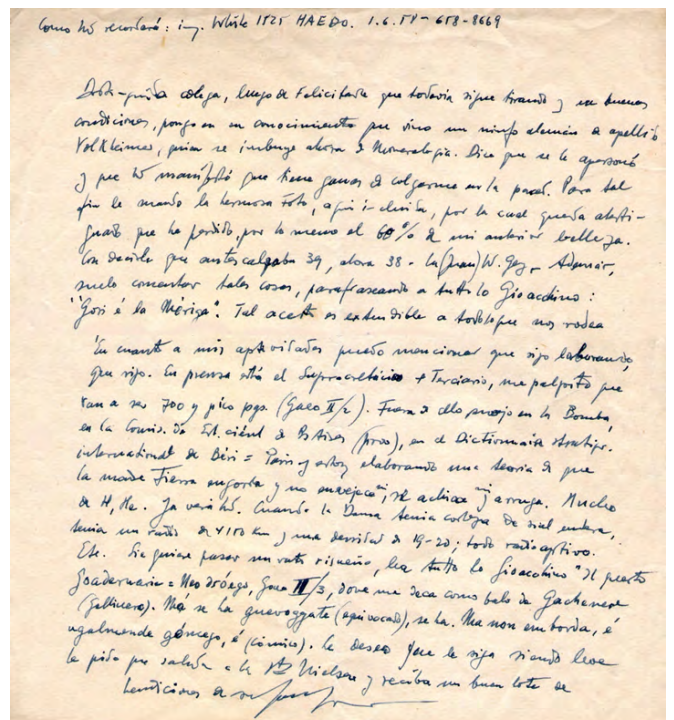 Como Ud recordará: ing. White 1525 HAEDO. 1.6.58 - 658-8669
colega, luego de Felicitarle que todavía sigue tirando y en buenas
condiciones, pongo en su conocimiento que vino un ninfo alemán de apellido
Volkheimer, quien se imbuye ahora de Mineralogía. Dice que se le apersonó
y que Ud manifestó que tiene ganas de colgarme en la pared. Para tal
fin le mando la hermosa foto, aquí incluida, por la cual queda atesti-
guado que he perdido, por lo menos el 60% de mi anterior belleza.
Con decirle que antes calzaba 39, ahora 38 - La (Juan) W. Gez - Ademair,
suelo comentar tales cosas, parafraseando a tutto lo Gioacchino:
"Gosi é la". Tal acerto es extendible a todo lo que nos rodea
En cuanto a mis aptividades puedo mencionar que sigo laborando,
que sigo. En prensa está el Supracretácico + Terciario, me palpito que
van a ser 700 y pico pgs. (Gaeo II/2). Fuera de ello en la Bomba,
en la Comis. de Est. cient. de P. Aires (prov), en el Dictionnaire stratigr.
international de = Paris y estoy elaborando una teoría de que
la madre Tierra engorda y no envejece, se achica y arruga. Mucho
de H, He. Ya verá Ud. Cuando la Dama tenía corteza de sial entera,
tenía un radio de 4150 km y una densidad de 19-20; todo radioaptivo.
Etc. Si quiere pasar un rato risueño, lea tutto lo Gioacchino "Il puerto
Goadernario = Neozóego, Gaeo III/3, dove me deca como balo de Gachenere
(Gallinero). Má se ha guevoggate (equivocado), se ha. Ma non emborda, é
ugalmende gómego, é (cómico). Le deseo que le siga siendo leve
le pido que salude a la Sra Nielsen y reciba un buen lote de
bendiciones de su